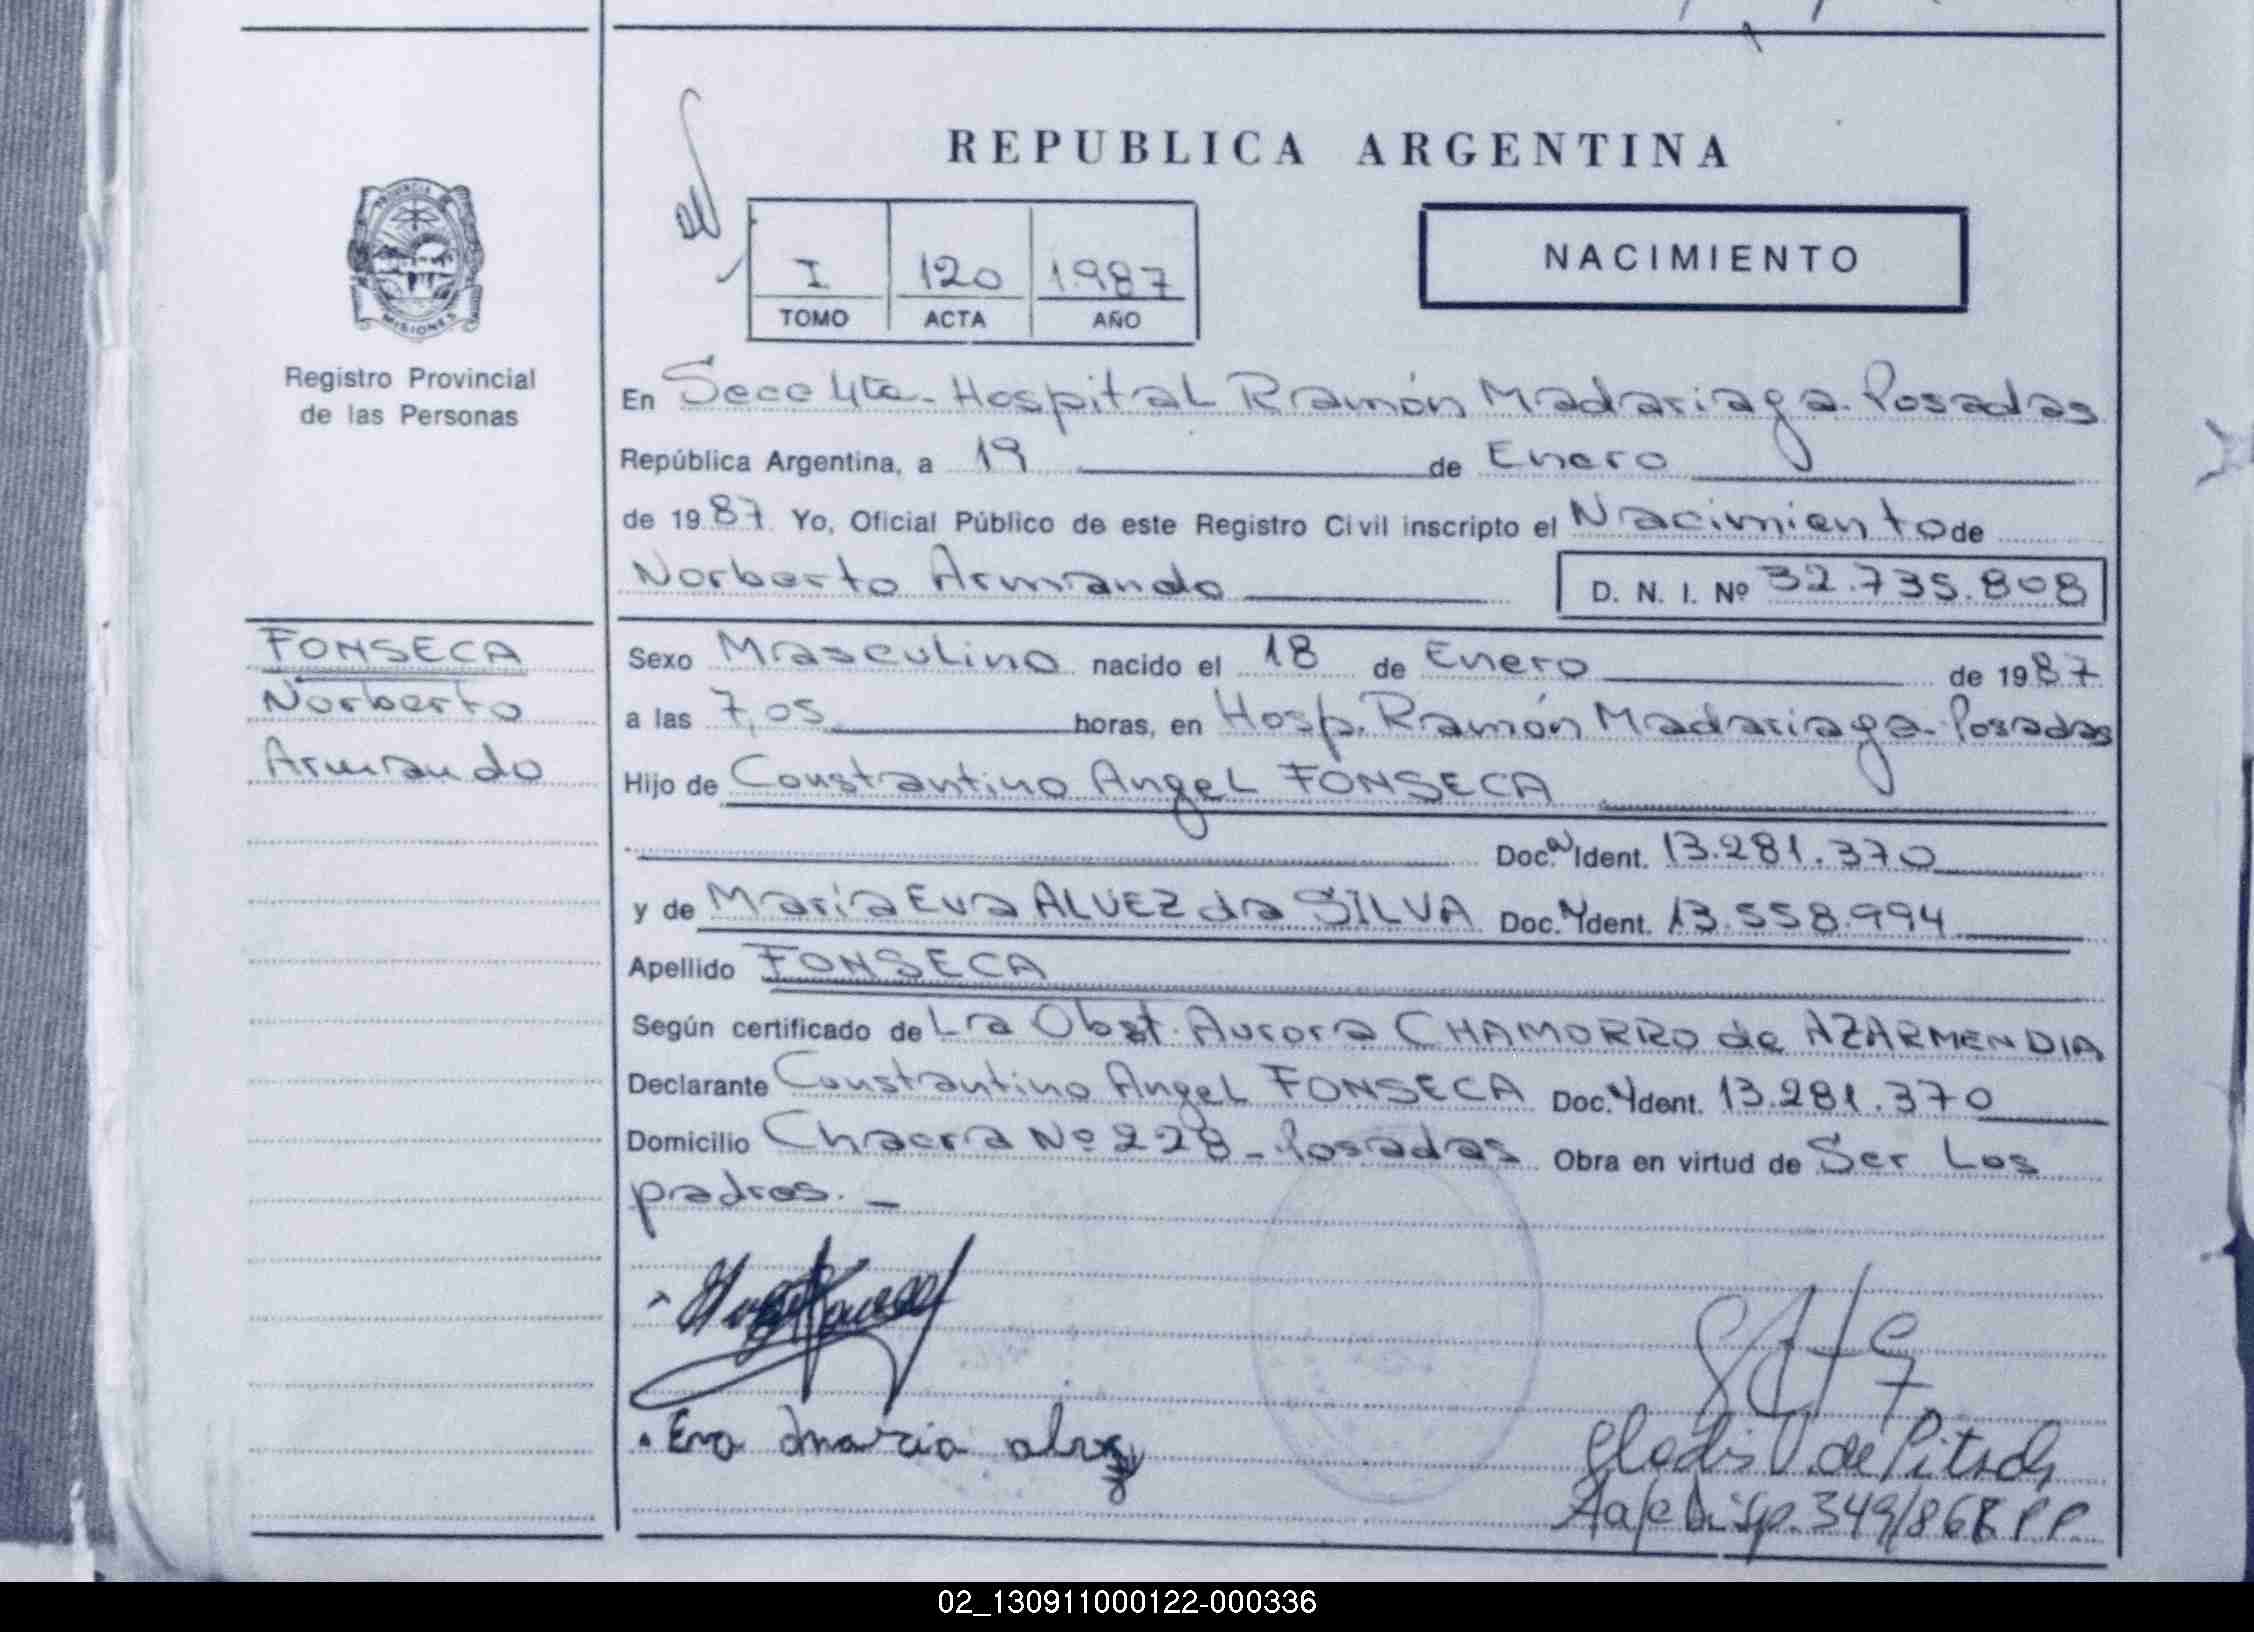 REPUBLICA ARGENTINA
PROVINCIA
MISIONES
Registro Provincial
de las Personas
I 120 1.987
TOMO ACTA AÑO
NACIMIENTO
En Secc 4ta - Hospital Ramón Madariaga - Posadas
República Argentina, a 19 de Enero
de 1987 Yo, Oficial Público de este Registro Civil inscripto el Nacimiento de
Norberto Armando D. N. I. Nº 32.735.808
FONSECA
Norberto
Armando
Sexo Masculino nacido el 18 de Enero de 1987
a las 7,05 horas, en Hosp. Ramón Madariaga - Posadas
Hijo de Constantino Angel FONSECA
Doc. Ident. 13.281.370
y de María Eva ALVEZ da SILVA Doc. Ident. 13.558.994
Apellido FONSECA
Según certificado de La Obst. Aurora CHAMORRO de AZARMENDIA
Declarante Constantino Angel FONSECA Doc. Ident. 13.281.370
Domicilio Chacra Nº 228 - Posadas Obra en virtud de Ser Los
padres. -
Eva maria alvez
Gladis V. de Pitsch
Disp. 349/86
02_130911000122-000336